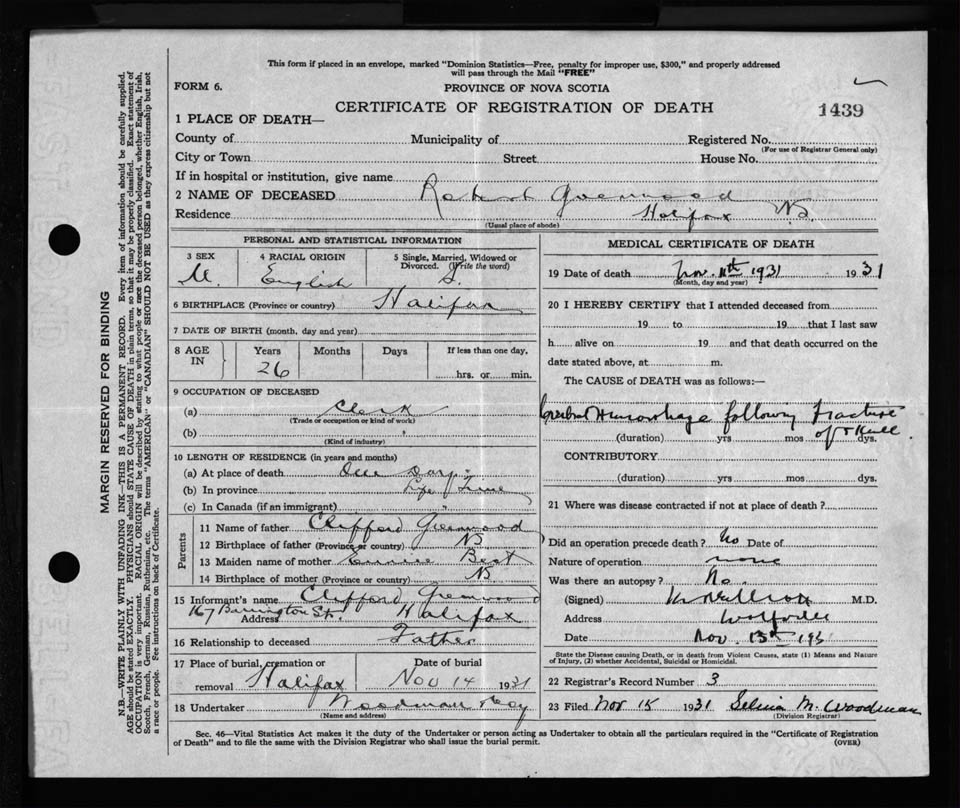 This form if placed in an envelope, marked "Dominion Statistics—Free, penalty for improper use, $300," and properly addressed
will pass through the Mail "FREE"
FORM 6.
PROVINCE OF NOVA SCOTIA
CERTIFICATE OF REGISTRATION OF DEATH
1439
1 PLACE OF DEATH—
County of Municipality of Registered No.
(For use of Registrar General only)
City or Town Street House No.
If in hospital or institution, give name
2 NAME OF DECEASED Robert Greenwood
Residence Halifax NS.
(Usual place of abode)
PERSONAL AND STATISTICAL INFORMATION
3 SEX 4 RACIAL ORIGIN 5 Single, Married, Widowed or
Divorced. (Write the word)
M. English S.
6 BIRTHPLACE (Province or country) Halifax
7 DATE OF BIRTH (month, day and year)
8 AGE IN Years Months Days If less than one day,
26 hrs. or min.
9 OCCUPATION OF DECEASED
(a) Clerk
(Trade or occupation or kind of work)
(b)
(Kind of industry)
10 LENGTH OF RESIDENCE (in years and months)
(a) At place of death One Day
(b) In province Life Time
(c) In Canada (if an immigrant)
Parents
11 Name of father Clifford Greenwood
12 Birthplace of father (Province or country) NS
13 Maiden name of mother Best
14 Birthplace of mother (Province or country) NS
15 Informant's name Clifford Greenwood
167 Barrington St. Halifax
Address
16 Relationship to deceased Father
17 Place of burial, cremation or Date of burial
removal Halifax Nov 14 1931
18 Undertaker Woodman
(Name and address)
MEDICAL CERTIFICATE OF DEATH
19 Date of death Nov. 11th 1931 1931
(Month, day and year)
20 I HEREBY CERTIFY that I attended deceased from
19 to 19 that I last saw
h alive on 19 and that death occurred on the
date stated above, at m.
The CAUSE of DEATH was as follows:—
Cerebral Hemorrhage following fracture
of skull.
(duration) yrs mos dys.
CONTRIBUTORY
(duration) yrs mos dys.
21 Where was disease contracted if not at place of death?
Did an operation precede death? No Date of
Nature of operation none
Was there an autopsy? No.
(Signed) M.D.
Address Wolfville
Date Nov. 13th 1931
State the Disease causing Death, or in death from Violent Causes, state (1) Means and Nature
of Injury, (2) whether Accidental, Suicidal or Homicidal.
22 Registrar's Record Number 3
23 Filed Nov 15 1931 Selina M. Woodman
(Division Registrar)
Sec. 46—Vital Statistics Act makes it the duty of the Undertaker or person acting as Undertaker to obtain all the particulars required in the "Certificate of Registration
of Death" and to file the same with the Division Registrar who shall issue the burial permit.
(OVER)
MARGIN RESERVED FOR BINDING
N.B.—WRITE PLAINLY WITH UNFADING INK—THIS IS A PERMANENT RECORD. Every item of information should be carefully supplied.
AGE should be stated EXACTLY. PHYSICIANS should STATE CAUSE OF DEATH in plain terms, so that it may be properly classified. Exact statement of
OCCUPATION is very important. RACIAL ORIGIN will be described by stating to what people or race the deceased person belonged, whether English, Irish,
Scotch, French, German, Russian, Ruthenian, etc. The terms "AMERICAN" or "CANADIAN" SHOULD NOT BE USED as they express citizenship but not
a race or people. See instructions on back of Certificate.